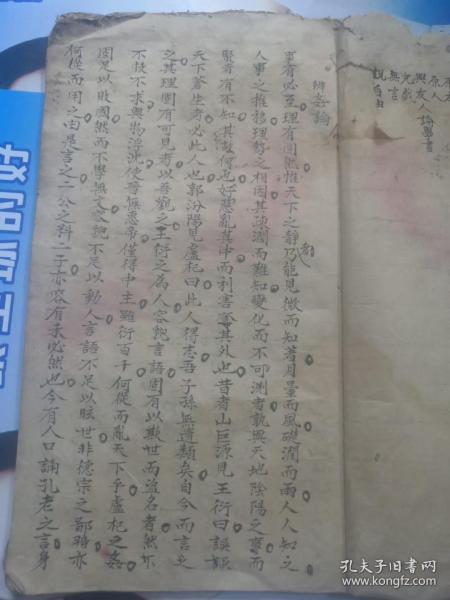 與友人論學書
辨姦論
事有必至理有固然惟天下之靜者乃能見微而知著月暈而風礎潤而雨人人知之
人事之推移理勢之相因其疎濶而難知變化而不可測者孰與天地陰陽之事而
賢者有不知其故何也好惡亂其中而利害奪其外也昔者山巨源見王衍曰誤
天下蒼生者必此人也郭汾陽見盧杞曰此人得志吾子孫無遺類矣自今而言之
之其理固有可見者以吾觀之王衍之為人容貌言語固有以欺世而盜名者然不
忮不求與物浮沉使晉無惠帝僅得中主雖衍百千何從而亂天下乎盧杞之姦
固足以敗國然而不學無文容貌不足以動人言語不足以眩世非德宗之鄙暗亦
何從而用之由是言之二公之料二子亦容有未必然也今有人口誦孔老之言身
孔夫子旧书网